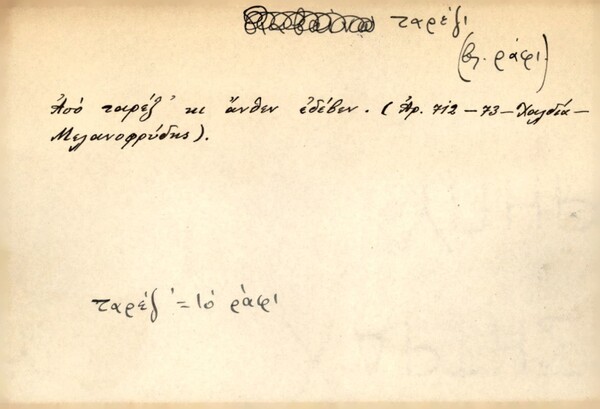 ταρέζι
(βλ. ράφι)
Ἀπό ταρέζ' κι ἄνθεν ἐδέβεν. (Ἀρ. 712 – 73 – Χαλδία –
Μελανοφρύδης).
ταρέζ' = τό ράφι